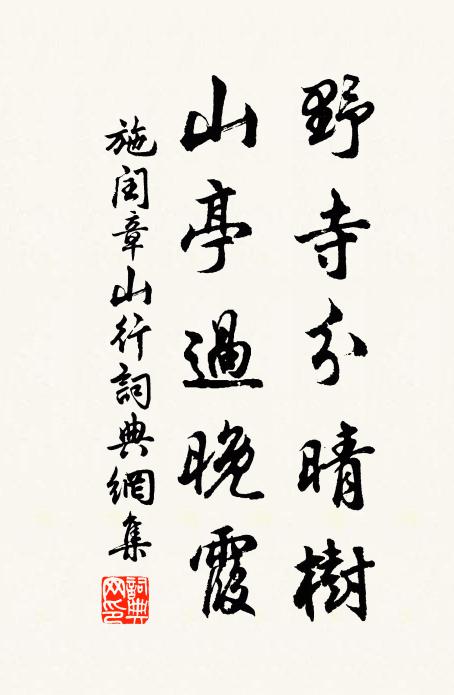 野寺分晴樹
山亭過晚霞
施閏章山行詞典網集
詞典網印